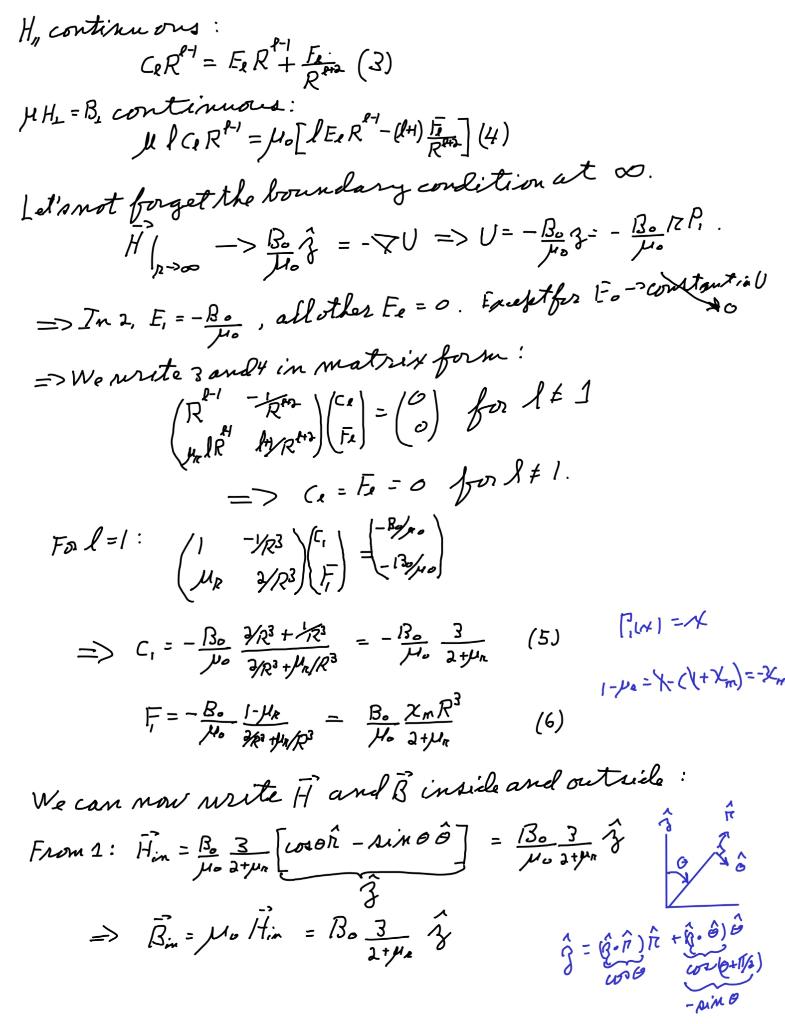 H∥ continuous :
C_ℓ R^{ℓ-1} = E_ℓ R^{ℓ-1} + F_ℓ/R^{ℓ+2} (3)
μH⊥ = B⊥ continuous:
μ ℓ C_ℓ R^{ℓ-1} = μ₀[ℓ E_ℓ R^{ℓ-1} - (ℓ+1) F_ℓ/R^{ℓ+2}] (4)
Let's not forget the boundary condition at ∞.
H⃗|_{r→∞} → B₀/μ₀ ẑ = -∇U => U = -B₀/μ₀ z = -B₀/μ₀ r P₁.
=> In 2, E₁ = -B₀/μ₀, all other E_ℓ = 0. Except for E₀ → constant in U → 0
=> We write 3 and 4 in matrix form :
(R^{ℓ-1} -1/R^{ℓ+2}) (C_ℓ) = (0) for ℓ ≠ 1
(μ_r ℓR^{ℓ-1} ℓ+1/R^{ℓ+2}) (F_ℓ) (0)
=> C_ℓ = F_ℓ = 0 for ℓ ≠ 1.
For ℓ=1 : (1 -1/R³) (C₁) = (-B₀/μ₀)
(μ_r 2/R³) (F₁) (-B₀/μ₀)
=> C₁ = -B₀/μ₀ (2/R³ + 1/R³)/(2/R³ + μ_r/R³) = -B₀/μ₀ 3/(2+μ_r) (5)
P₁(x) = x
1-μ_r = 1-(1+χ_m) = -χ_m
F₁ = -B₀/μ₀ (1-μ_r)/(2/R³ + μ_r/R³) = B₀/μ₀ χ_m R³/(2+μ_r) (6)
We can now write H⃗ and B⃗ inside and outside :
From 1: H⃗_in = B₀/μ₀ 3/(2+μ_r) [cosθ r̂ - sinθ θ̂] = B₀/μ₀ 3/(2+μ_r) ẑ
ẑ
=> B⃗_in = μ₀ H⃗_in = B₀ 3/(2+μ_r) ẑ
ẑ r̂
θ θ̂
ẑ = (ẑ·r̂) r̂ + (ẑ·θ̂) θ̂
cosθ cos(θ+π/2)
-sinθ